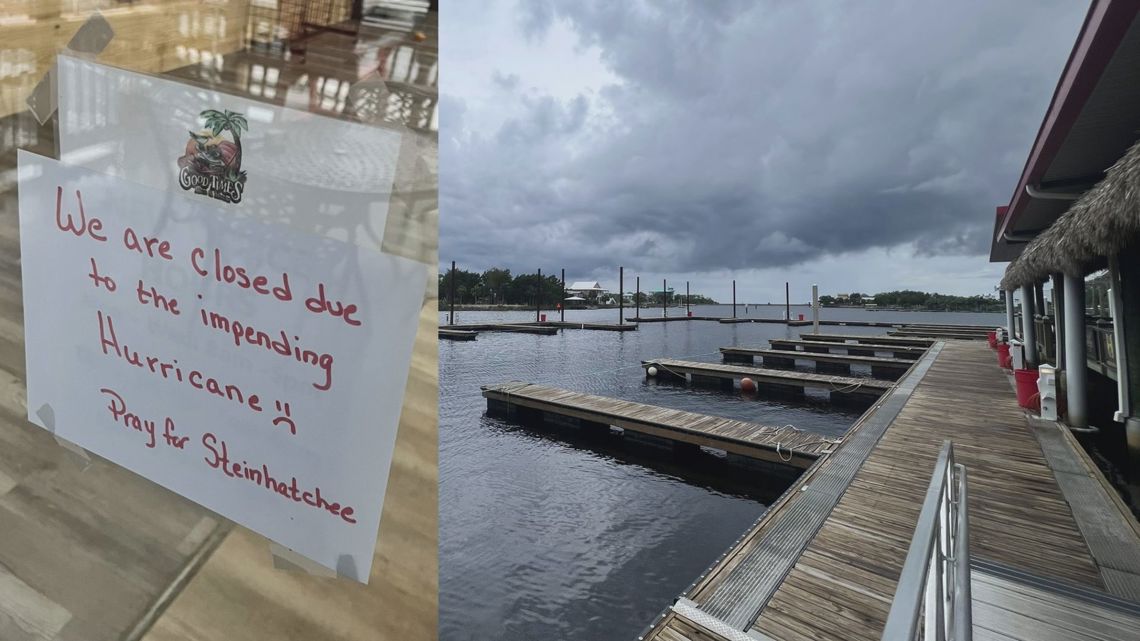 GOOD TIMES
We are closed due
to the impending
Hurricane :(
Pray for Steinhatchee